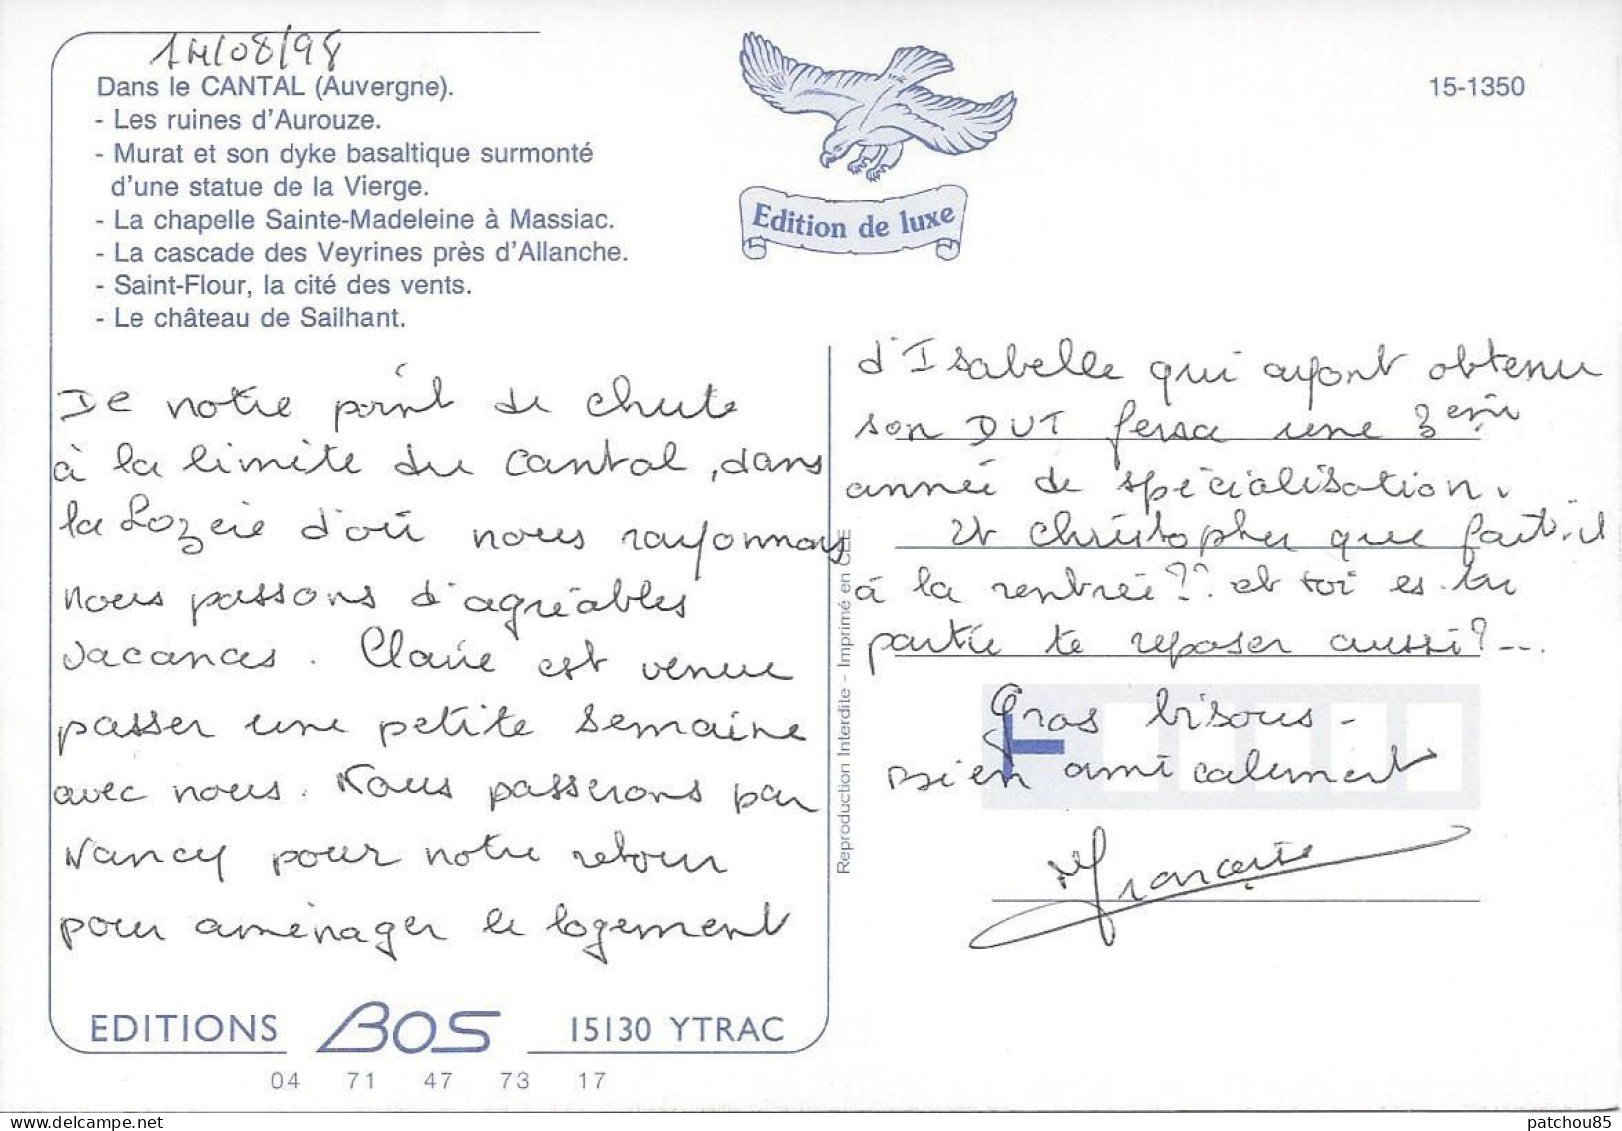 14/08/98
Dans le CANTAL (Auvergne).
- Les ruines d'Aurouze.
- Murat et son dyke basaltique surmonté
d'une statue de la Vierge.
- La chapelle Sainte-Madeleine à Massiac.
- La cascade des Veyrines près d'Allanche.
- Saint-Flour, la cité des vents.
- Le château de Sailhant.
Edition de luxe
15-1350
De notre point de chute
à la limite du Cantal, dans
la Lozère d'où nous rayonnons
nous passons d'agréables
vacances. Claire est venue
passer une petite semaine
avec nous. Nous passerons par
Nancy pour notre retour
pour aménager le logement
d'Isabelle qui ayant obtenu
son DUT fera une 3ème
année de spécialisation.
Et Christopher que fait-il
à la rentrée?? et toi es-tu
partie te reposer aussi?...
Gros bisous -
Bien amicalement
Françoise
Reproduction Interdite - Imprimé en CEE
EDITIONS BOS 15130 YTRAC
04 71 47 73 17
patchou85